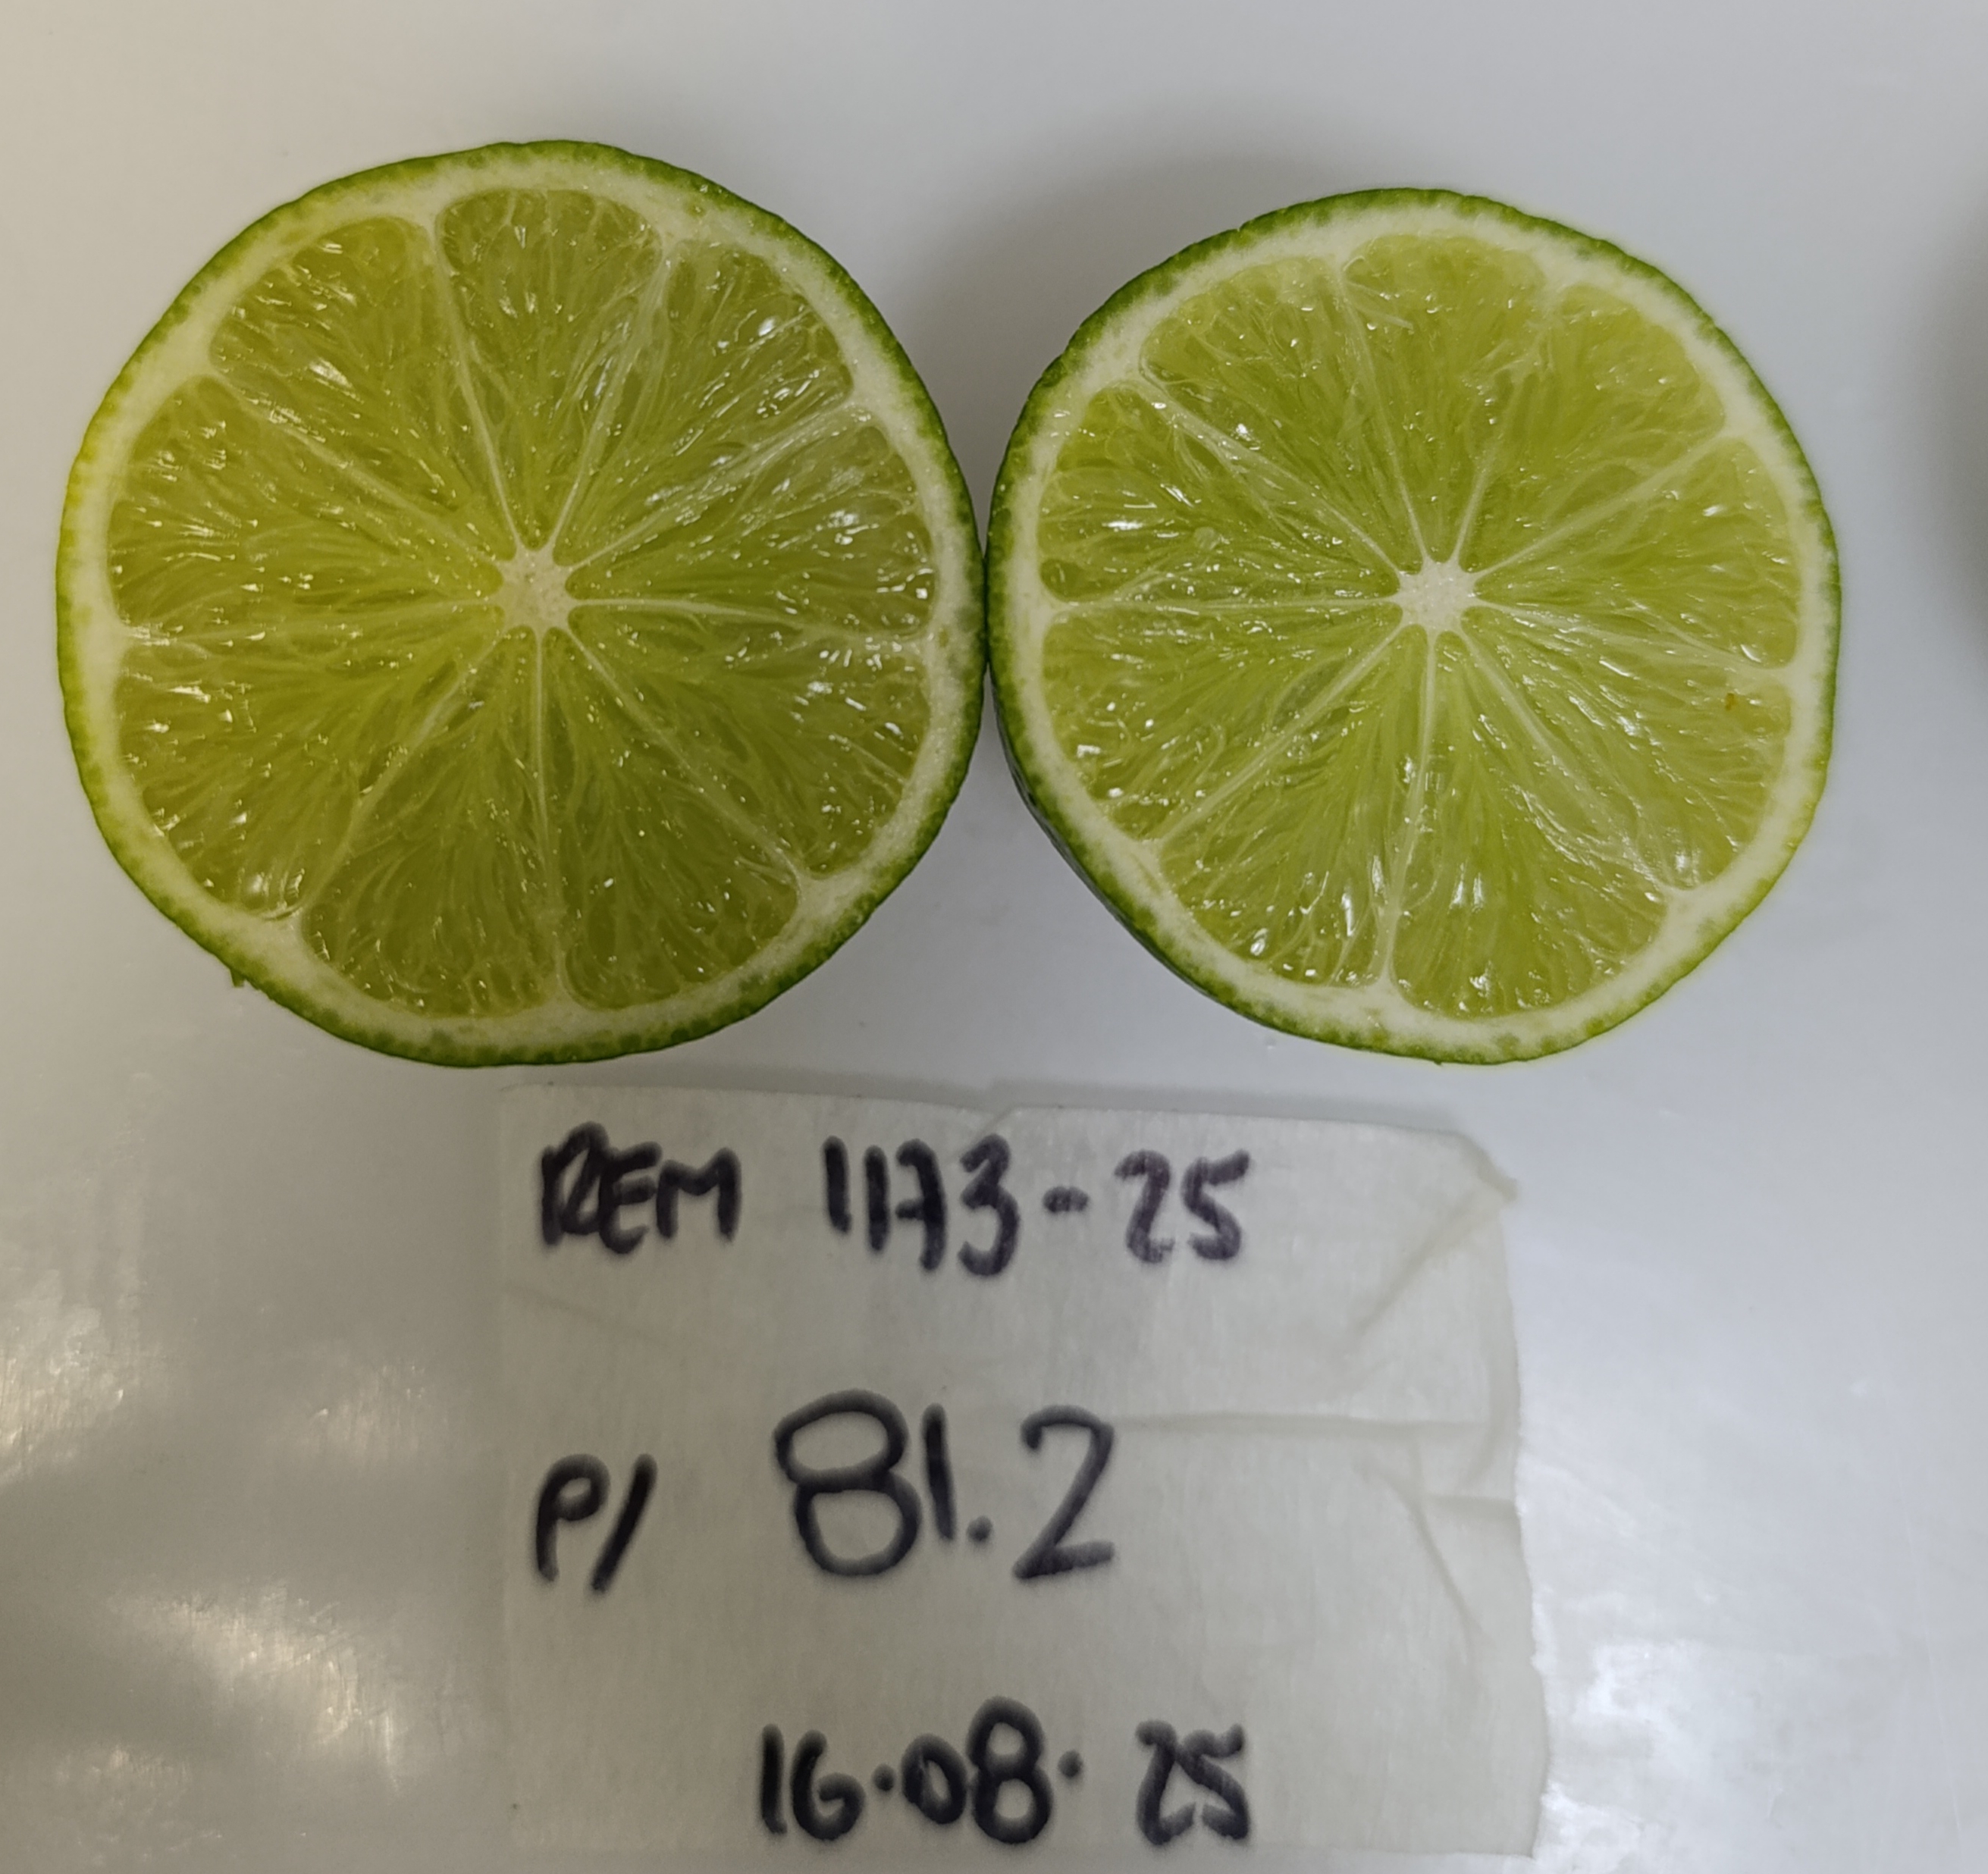 REM 1173-25
P/ 81.2
16.08.25